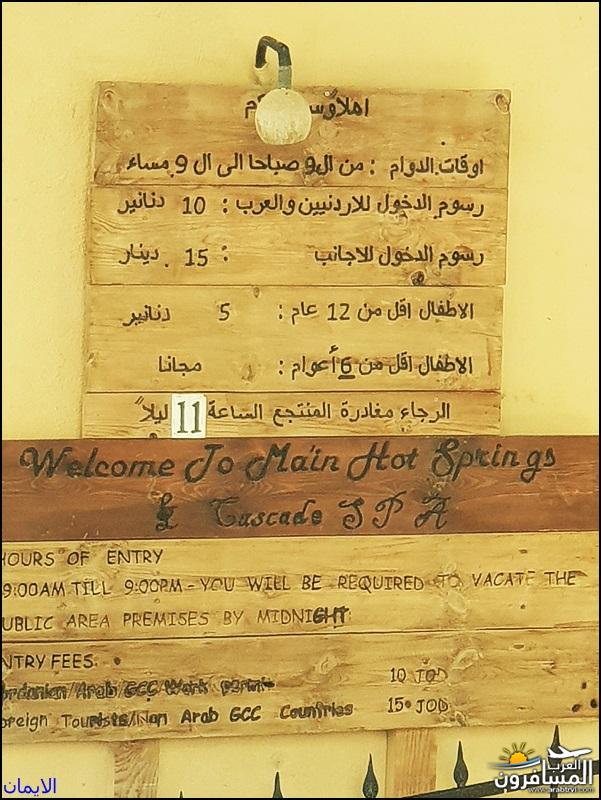 اوقات الدوام : من ال9 صباحا الى ال 9 مساء
رسوم الدخول للاردنيين والعرب : 10 دنانير
رسوم الدخول للاجانب : 15 دينار
الاطفال اقل من 12 عام : 5 دنانير
الاطفال اقل من 6 أعوام : مجانا
الرجاء مغادرة المنتجع الساعة 11 ليلاً
Welcome To Ma'in Hot Springs
& Cascade SPA
HOURS OF ENTRY
9:00AM TILL 9:00PM - YOU WILL BE REQUIRED TO VACATE THE
UBLIC AREA PREMISES BY MIDNIGHT
NTRY FEES.
ordanian/Arab/GCC Work Permit 10 JOD
oreign Tourists/Non Arab GCC Countries 15 JOD
الايمان
العرب
المسافرون
www.arabtrvl.com